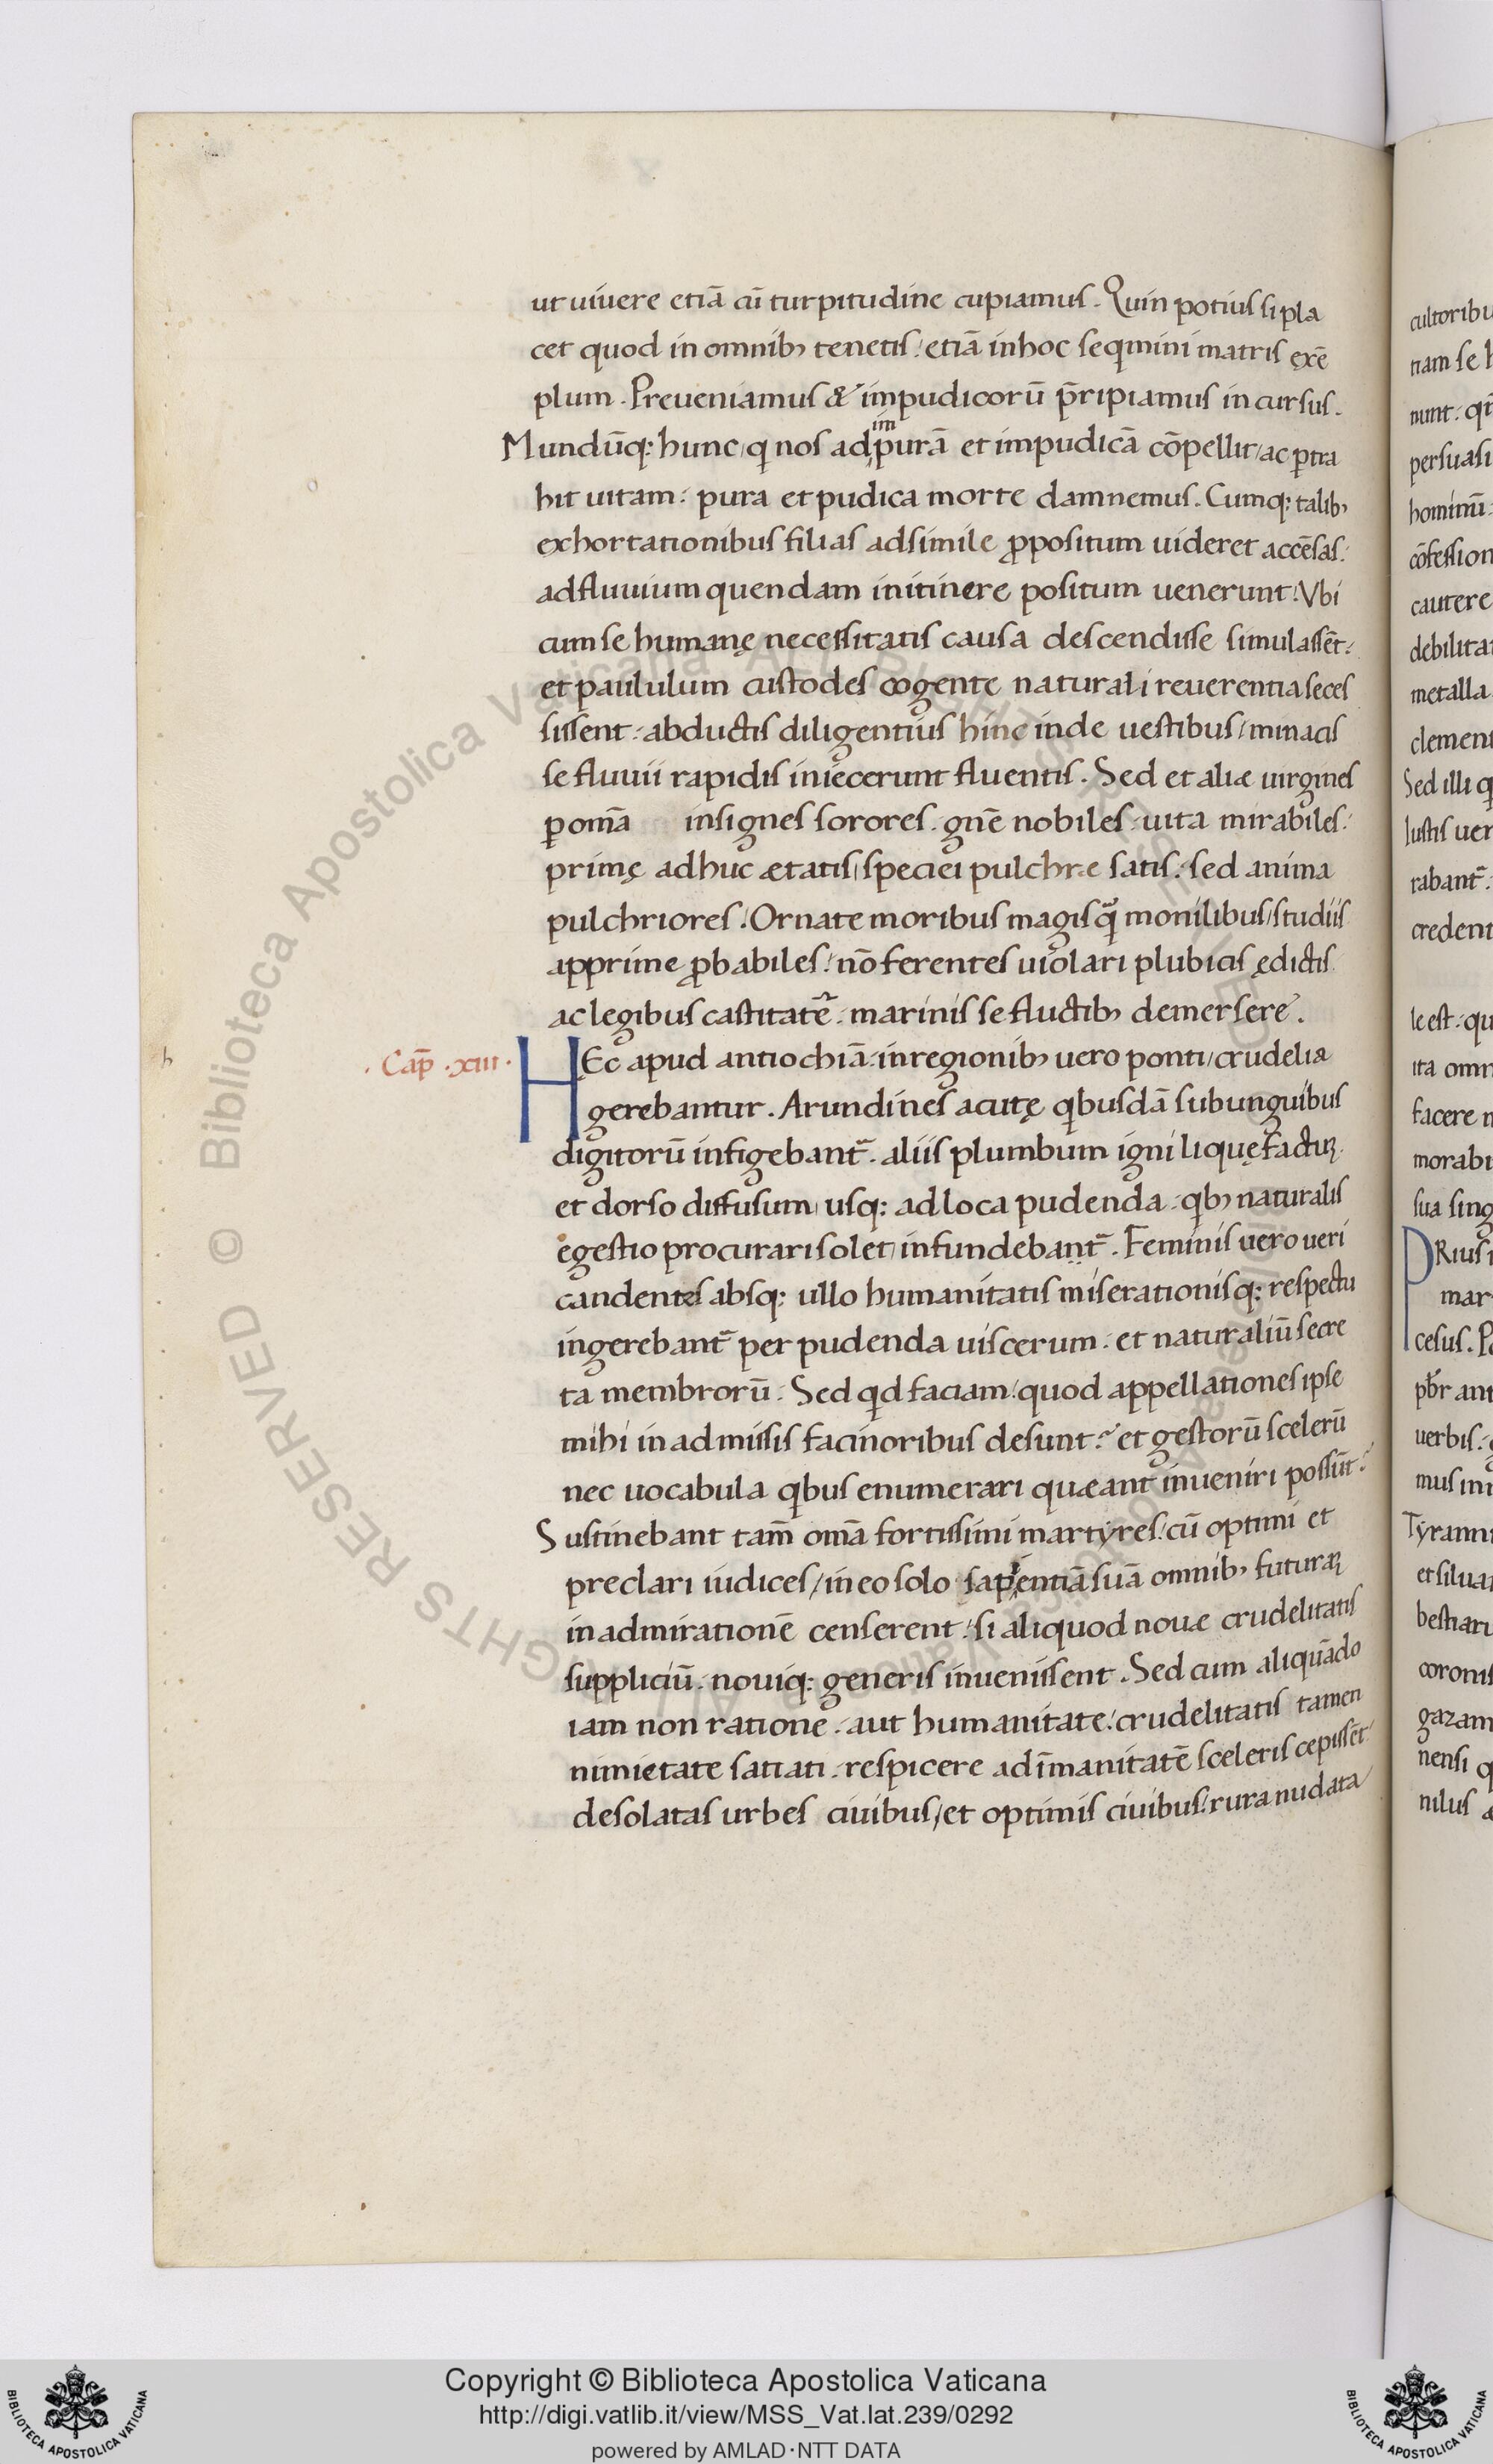 ut uiuere etiā cū turpitudine cupiamus. Quin potius si pla
cet quod in omnibꝫ tenetis: etiā in hoc seqmini matris exē
plum. Preueniamus & impudicorū p̄ripiamus incursus.
Mundūq: hunc q nos ad impurā et impudicā cōpellit ac ptra
hit uitam: pura et pudica morte damnemus. Cumq: talibꝫ
exhortationibus filias ad simile ꝓpositum uideret accēsas:
ad fluuium quendam in itinere positum uenerunt: Vbi
cum se humanę necessitatis causa descendisse simulassēt:
et paululum custodes cogente naturali reuerentia seces
sissent: abductis diligentius hinc inde uestibus/ minacis
se fluuii rapidis iniecerunt fluentis. Sed et aliæ uirgines
ꝑ omā insignes sorores. gñe nobiles. uita mirabiles:
primę adhuc ætatis/ speciei pulchræ satis: sed anima
pulchriores: Ornate moribus magis q̄ monilibus/ studiis
apprime ꝓbabiles: nō ferentes uiolari plubicis ędictis
ac legibus castitatē: marinis se fluctibꝫ demersere.
. Cap̄ .xiii.
HEc apud antiochiā: in regionibꝫ uero ponti/ crudelia
gerebantur. Arundines acutę qbusdā sub unguibus
digitorū infigebant̄. aliis plumbum igni liquęfactūꝝ
et dorso diffusum/ usq: ad loca pudenda. qbꝫ naturalis
egestio procurari solet/ infundebant̄. Feminis uero ueri
candentes absq: ullo humanitatis miserationisq: respectu
ingerebant̄ per pudenda uiscerum: et naturaliū secre
ta membrorū: Sed qd faciam: quod appellationes ipse
mihi in admissis facinoribus desunt: et gestorū scelerū
nec uocabula qbus enumerari quæant inueniri possūt:
Sustinebant tam̄ omā fortissimi martyres: cū optimi et
preclari iudices/ in eo solo sapientiā suā omnibꝫ futuraꝝ
in admirationē censerent: si aliquod nouæ crudelitatis
suppliciū. nouiq: generis inuenissent. Sed cum aliquādo
iam non ratione. aut humanitate: crudelitatis tamen
nimietate satiati. respicere ad īmanitatē sceleris cepissēt
desolatas urbes ciuibus/ et optimis ciuibus: rura nudata
h
cultoribu
tiam se h
nunt: qī
persuasi
hominū:
cōfession
cautere
debilita
metalla
clement
Sed illi q
lustis uer
rabant̄.
credent
le est: qu
ita omn
facere n
morabi
sua sing
PRius
mar
cesus. P
pb̄r ant
uerbis:
mus ini
Tyranni
et silua
bestiaru
coronis
gazam
nensi q
nilus æ
Biblioteca Apostolica Vaticana ALL RIGHTS RESERVED ©
Copyright © Biblioteca Apostolica Vaticana
http://digi.vatlib.it/view/MSS_Vat.lat.239/0292
powered by AMLAD·NTT DATA
BIBLIOTECA APOSTOLICA VATICANA
BIBLIOTECA APOSTOLICA VATICANA